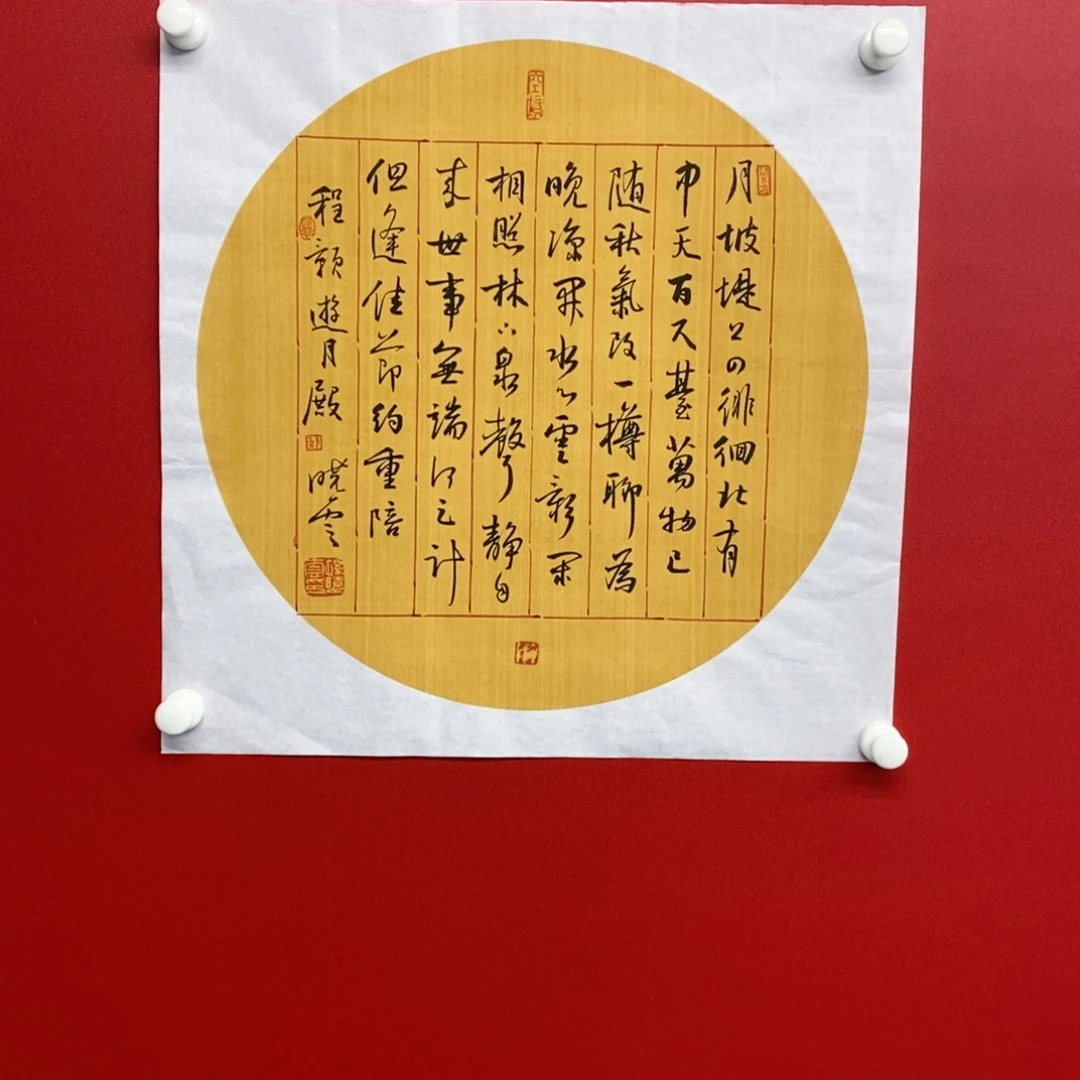 月坡堤上四徘徊北有
中天百尺臺萬物已
随秋氣改一樽聊為
晚涼開水心雲影閑
相照林下泉聲静自
来世事無端何足計
但逢佳節約重陪
程顥遊月殿 晓雲